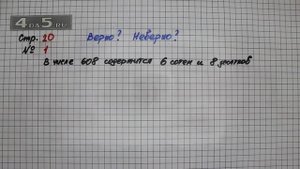 4DA5.RU
Стр. 20 Верно? Неверно?
№ 1
В числе 608 содержится 6 сотен и 8 десятков